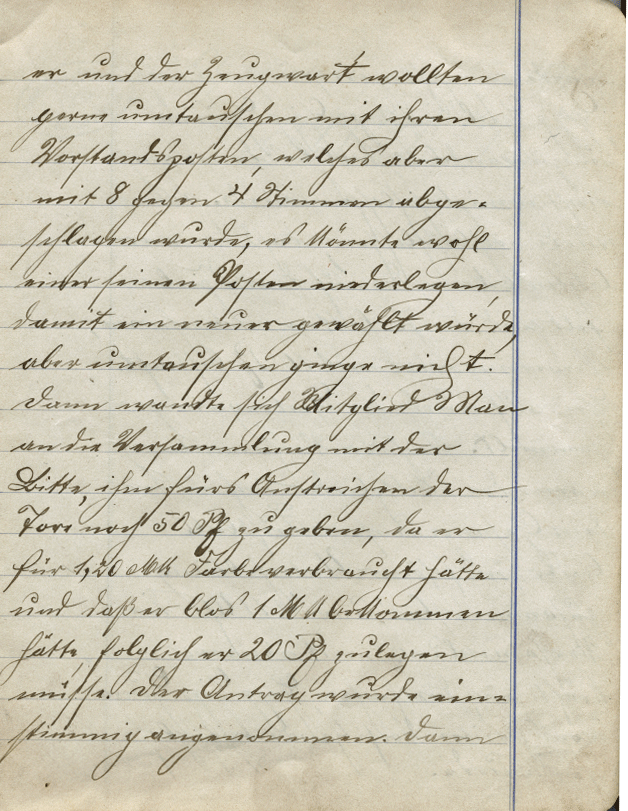 er und der Zeugwart wollten
gerne umtauschen mit ihren
Vorstandsposten, welches aber
mit 8 gegen 4 Stimmen abge-
schlagen wurde, es könnte wohl
einer seinen Posten niederlegen,
damit ein neuer gewählt würde,
aber umtauschen ginge nicht.
Dann wandte sich Mitglied Mau
an die Versammlung mit der
Bitte, ihm fürs Anstreichen der
Tore noch 50 Pf zu geben, da er
für 1,20 Mk Farbe verbraucht hätte
und daß er blos 1 Mk bekommen
hätte, folglich er 20 Pf zulegen
müsse. Der Antrag wurde ein-
stimmig angenommen. Dann